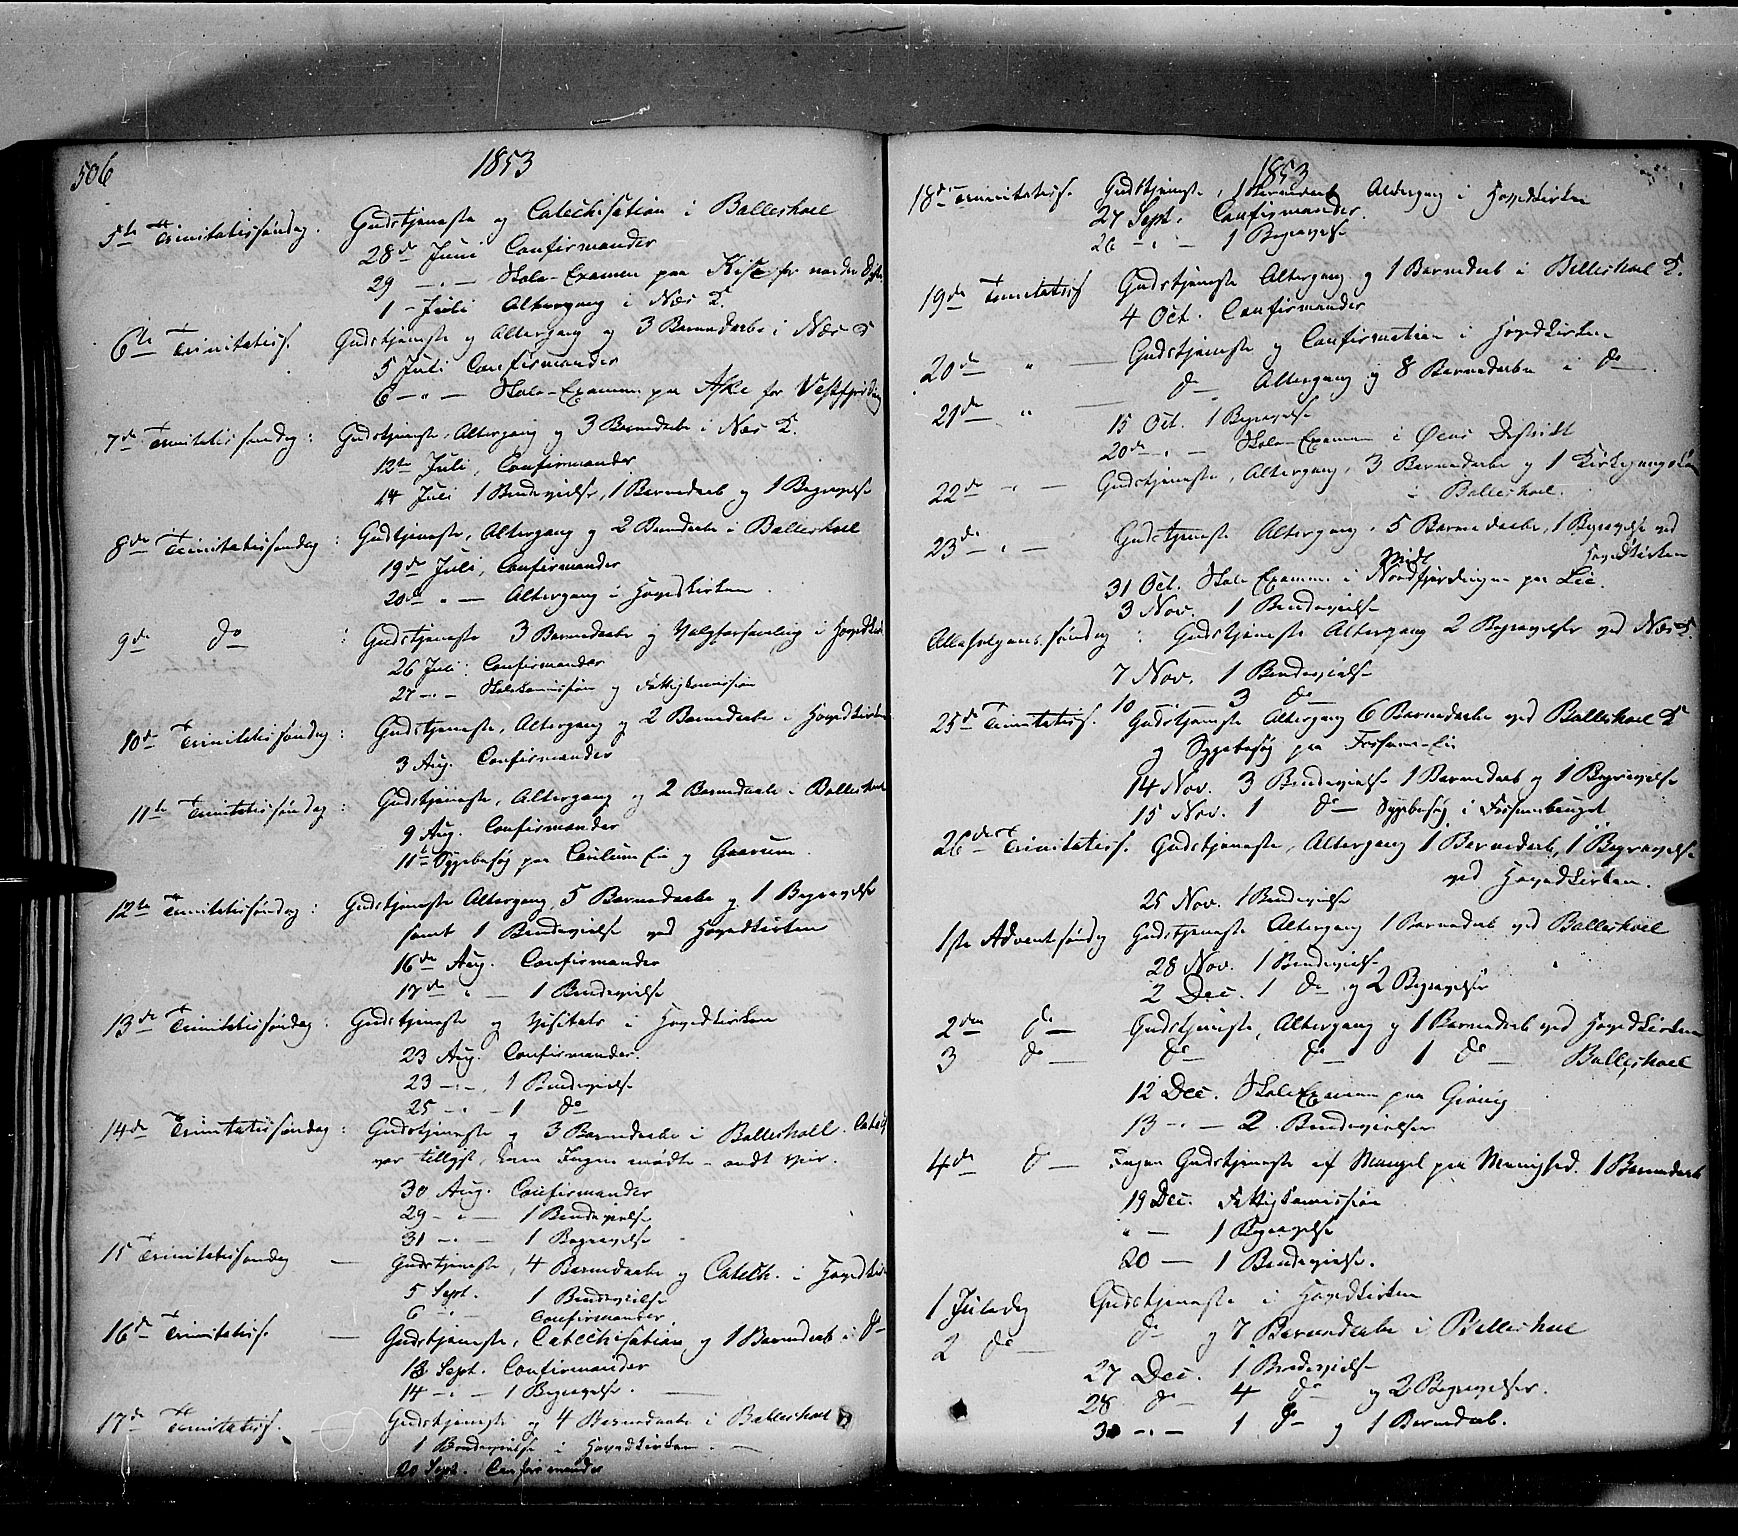 506
1853
5te Trinitatissøndag. Gudstjeneste og Catechisation i Balleshoel
28de Juni Confirmander
29 -"- Skole-Examen paa Kise for nordre
1 - Juli Altergang i Næs K.
6te Trinitatiss. Gudstjeneste og Altergang og 3 Barnedaabe i Næs K
5 Juli Confirmander
6 -"- Skole-Examen paa Ake for
7de Trinitatissøndag: Gudstjeneste, Altergang og 3 Barnedaabe i Næs K.
12te Juli, Confirmander
14 Juli 1 Brudevielse, 1 Barnedaab og 1 Begravelse
8de Trinitatissøndag: Gudstjeneste, Altergang og 2 Barnedaabe i Balleshoel
19de Juli, Confirmander
20de " - Altergang i Hovedkirken.
9de do : Gudstjeneste 3 Barnedaabe og Valgforsamling i
26 Juli: Confirmander
27 -"- Skolekomission og Fattigkomission
10de Trinitatissøndag: Gudstjeneste, Altergang og 2 Barnedaabe i Hovedkirken
3 Aug. Confirmander
11te Trinitatissøndag: Gudstjeneste, Altergang og 2 Barnedaabe i Balleshoel
9 Aug. Confirmander
11te Sygebesøg paa og
12te Trinitatissøndag: Gudstjeneste Altergang, 5 Barnedaabe og 1 Begravelse
samt 1 Brudevielse ved Hovedkirken
16de Aug. Confirmander
17de " - 1 Brudevielse
13de Trinitatissøndag: Gudstjeneste og Visitats i Hovedkirken
23 Aug. Confirmander.
23 -"- 1 Brudevielse
25 -"- 1 do
14de Trinitatissøndag: Gudstjeneste og 3 Barnedaabe i Balleshoel.
var tillyst, men Ingen mødte - ondt Veir.
30 Aug. Confirmander
29 -"- 1 Brudevielse
31 -"- 1 Begravelse
15 Trinitatissøndag - Gudstjeneste, 4 Barnedaabe og Catech. i
5 Sept. 1 Brudevielse
6 -"- Confirmander.
16de Trinitatiss. - Gudstjeneste, Catechisation og 1 Barnedaab i do
13 Sept. Confirmander
14 -"- 1 Begravelse.
17de Trinitatiss. - Gudstjeneste og 4 Barnedaabe i Balleshoel
1 Brudevielse i Hovedkirken. -
20 Sept. Confirmander
1853
18de Trinitatiss. Gudstjeneste, 1 Barnedaab Altergang i Hovedkirken
27 Sept. Confirmander.
26 -"- 1 Begravelse
19de Trinitatiss Gudstjeneste Altergang og 1 Barnedaab i Balleshoel K.
4 Oct. Confirmander
20de " - Gudstjeneste og Confirmation i Hovedkirken
21de " - do Altergang og 8 Barnedaabe i do.
15 Oct. 1 Begravelse
20de -"- Skole-Examen i Distrikt
22de -"- Gudstjeneste, Altergang, 3 Barnedaabe og 1
i Balleshoel.
23de -"- Gudstjeneste Altergang, 5 Barnedaabe, 1 Begravelse ved
Hovedkirken
31 Oct. Skole Examen i Nordfjerdingen paa Lie.
3 Nov. 1 Brudevielse
Allehelgens søndag: Gudstjeneste Altergang 2 Begravelser ved Næs K.
7 Nov. 1 Brudevielse
10 - 3 do
25de Trinitatiss. Gudstjeneste Altergang 6 Barnedaabe ved Balleshoel K
og Sygebesøg paa
14 Nov. 3 Brudevielse 1 Barnedaab og 1 Begravelse
15 Nov. 1 do - Sygebesøg i
26de Trinitatiss. Gudstjeneste, Altergang 1 Barnedaab, 1 Begravelse
ved Hovedkirken.
25 Nov. 1 Brudevielse
1ste Adventsøndag Gudstjeneste Altergang 1 Barnedaab ved Balleshoel
28 Nov. 1 Brudevielse
2 Dec. 1 do og 2 Begravelser
2den do Gudstjeneste, Altergang og 1 Barnedaab ved Hovedkirken
3 do - do do 1 do - Balleshoel
12 Dec. Skole Examen paa
13 -"- 2 Brudevielser
4de do - Ingen Gudstjeneste af Mangel paa Menighed. 1 Barnedaab
19 Dec. Fattigkomission
" - 1 Begravelse
20 - 1 Brudevielse.
1 Juledag Gudstjeneste i Hovedkirken
2 do - do og 7 Barnedaabe i Balleshoel
27 Dec. 1 Brudevielse
28 do 4 do og 2 Begravelser.
30 -"- 1 do og 1 Barnedaab.